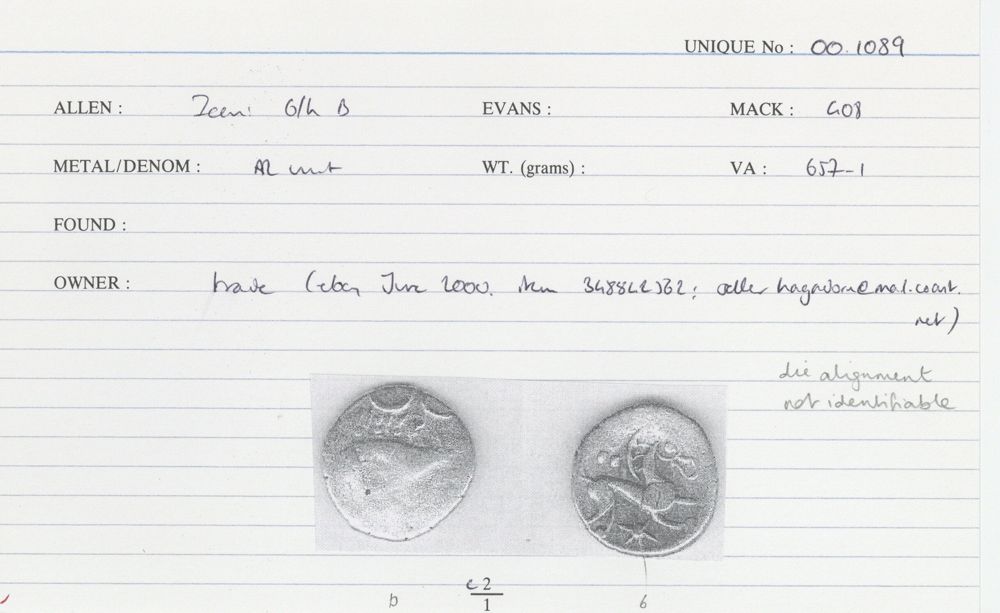 UNIQUE No : 00.1089
ALLEN : Iceni G/h B EVANS : MACK : 408
METAL/DENOM : AR unit WT. (grams) : VA : 657-1
FOUND :
OWNER : trade (ebay June 2000. item : seller
net)
die alignment
not identifiable
c 2
b 1 6